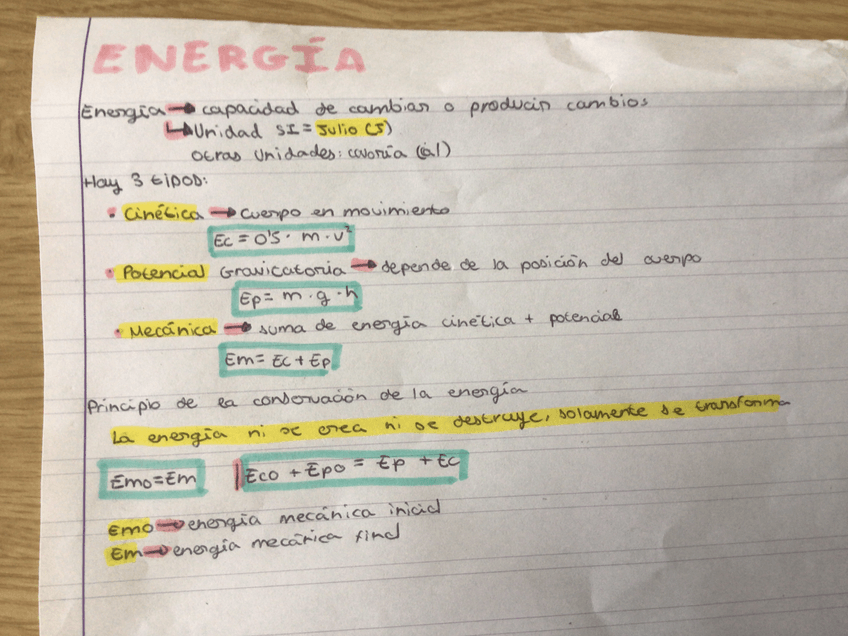 ENERGÍA
Energía → capacidad de cambiar o producir cambios
↳ Unidad SI = Julio (J)
Otras unidades: caloría (cal)
Hay 3 tipos:
• Cinética → cuerpo en movimiento
Ec = 0'5 · m · v²
• Potencial Gravicatoria → depende de la posición del cuerpo
Ep = m · g · h
• Mecánica → suma de energía cinética + potencial
Em = Ec + Ep
Principio de la conservación de la energía
La energía ni se crea ni se destruye, solamente se transforma
Emo = Em | Eco + Epo = Ep + Ec
Emo → energía mecánica inicial
Em → energía mecánica final